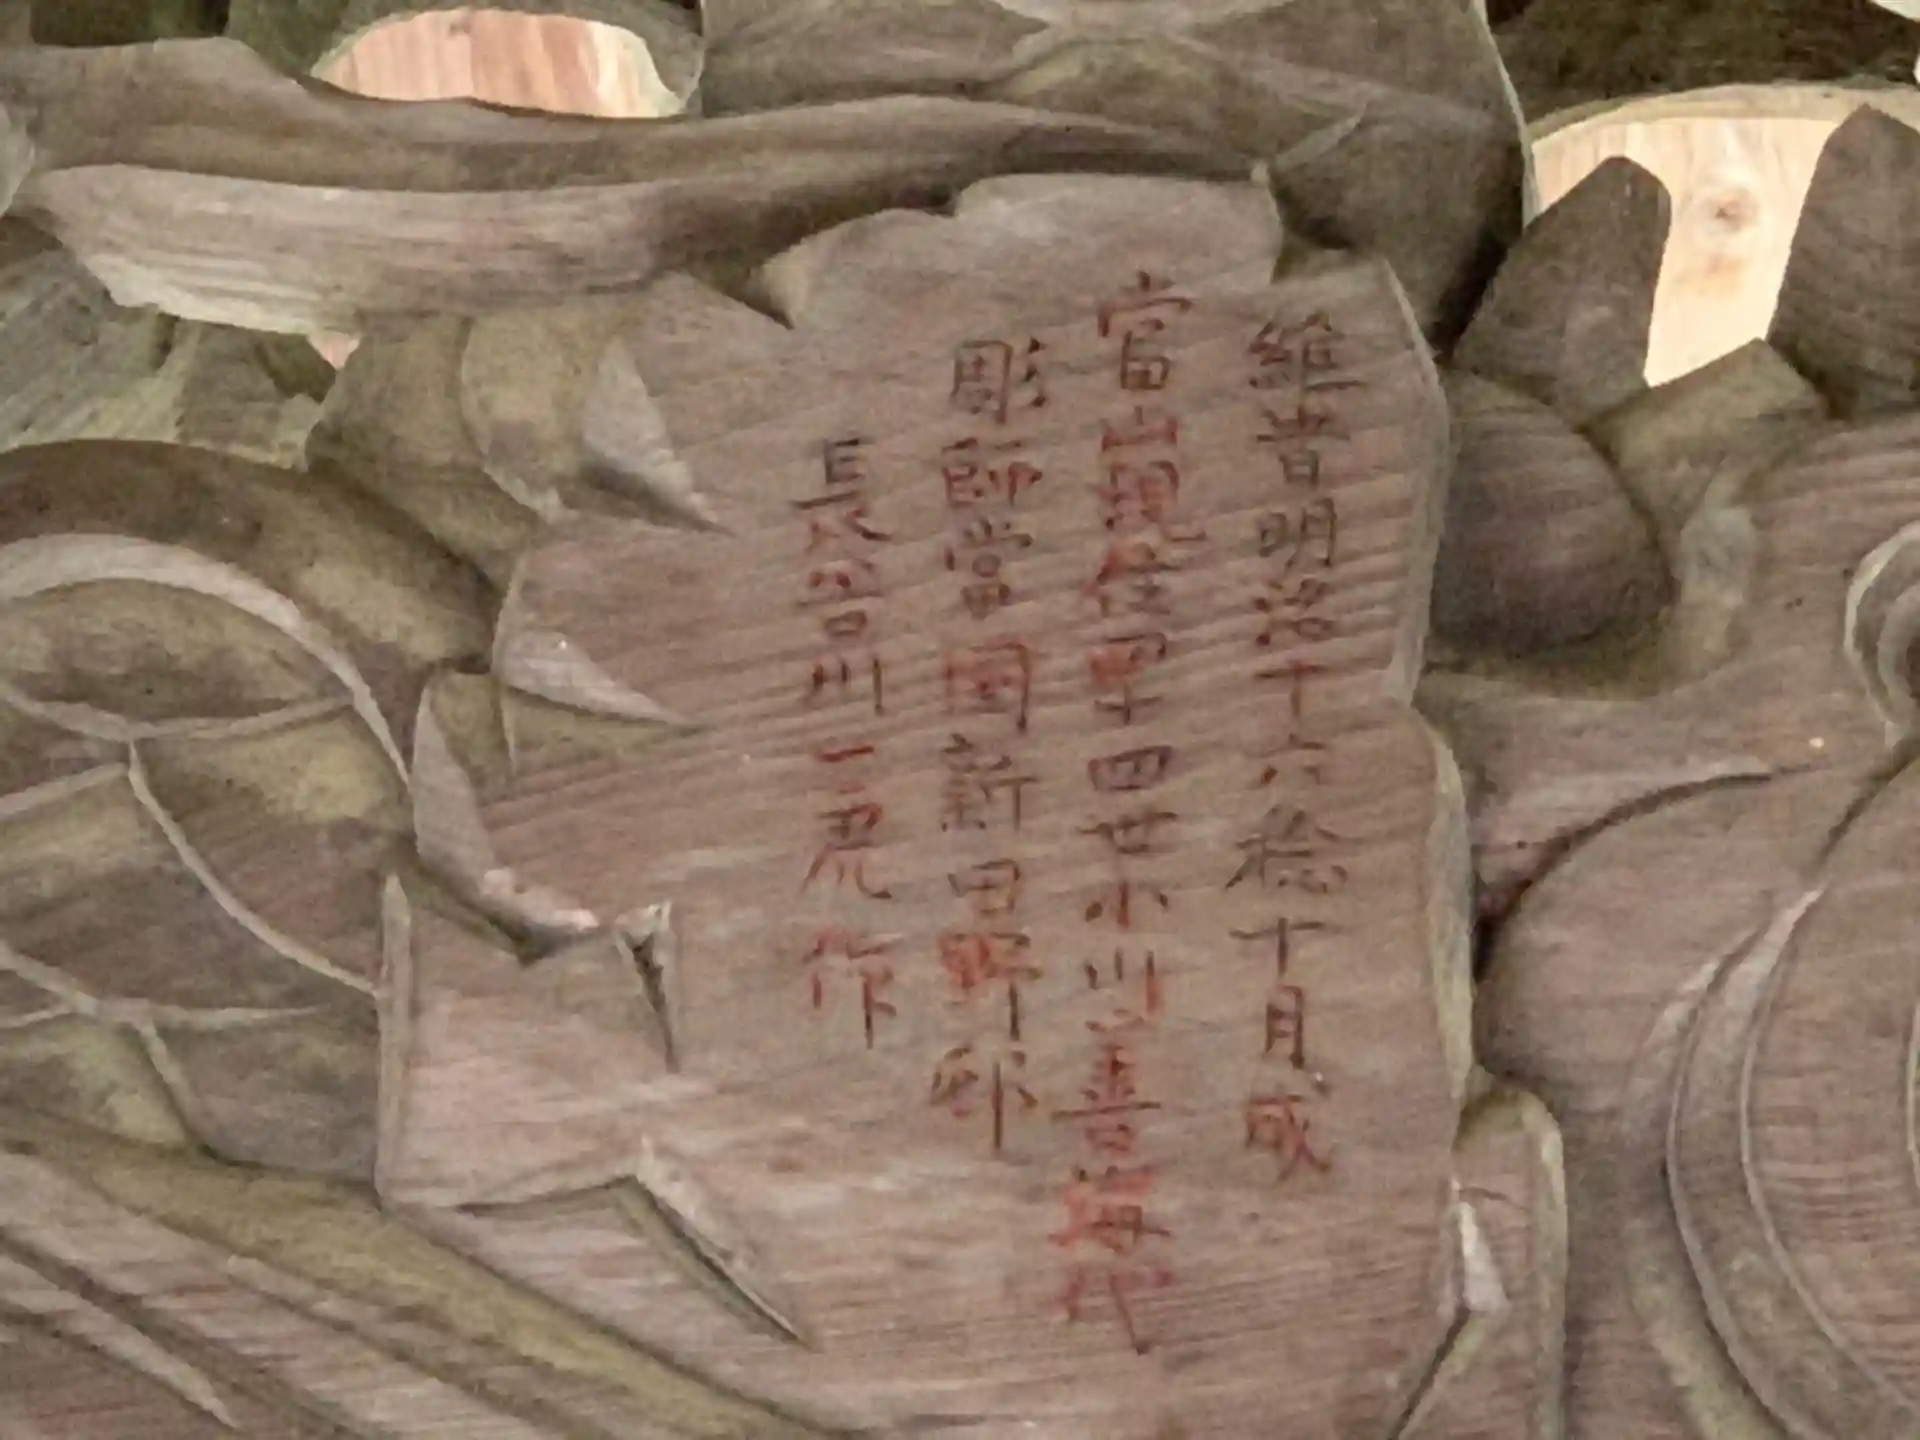 維昔明治十六稔十月成
當山現住四十四世小川善海代
彫師當國新田野邨
長谷川一虎作